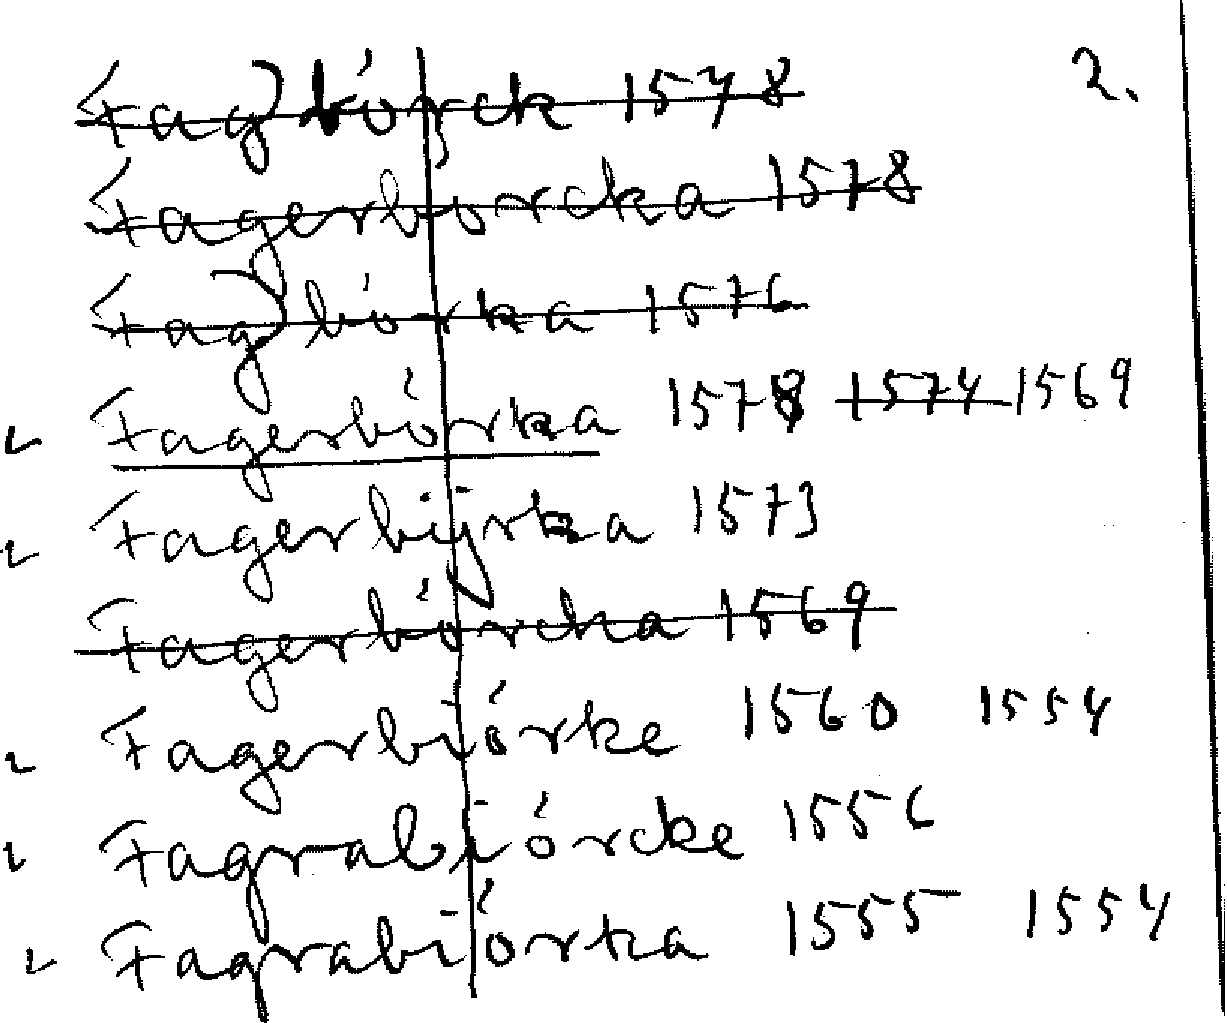 2.
Fag) bórck 1578
Fagerbórcka 1578
Fag) bórka 1576
Fagerbórka 1578 1574 1569
Fagerbijrka 1573
Fagerbórcka 1569
Fagerbiórke 1560 1554
Fagrabiórcke 1556
Fagrabiórka 1555 1554